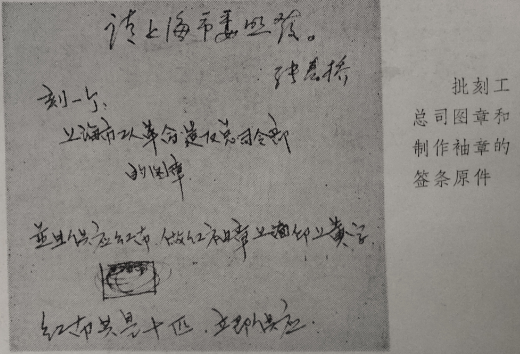 请上海市委照发。
张春桥
刻一个、
上海市工人革命造反总司令部
的图章
并且供应红布，做红袖章上面印上黄字。
红布共是十匹，立即供应.
批刻工
总司图章和
制作袖章的
签条原件